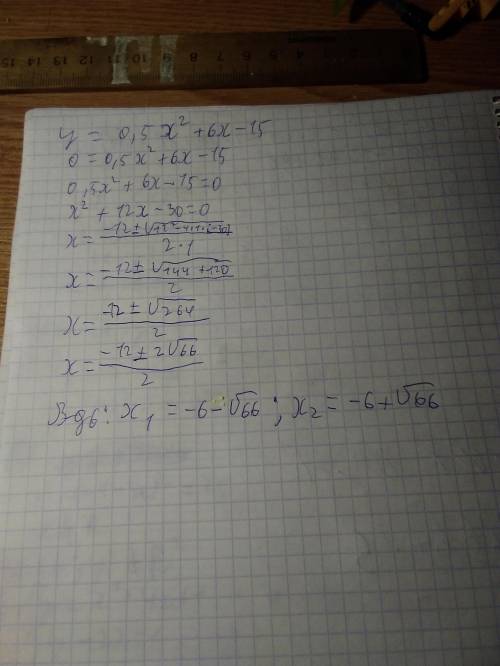 15 14 13 12 11 10 9 8 7 6 5 4 3 2 1
y = 0,5x² + 6x - 15
0 = 0,5x² + 6x - 15
0,5x² + 6x - 15 = 0
x² + 12x - 30 = 0
x = (-12 ± √(12² - 4·1·(-30)))/(2·1)
x = (-12 ± √(144 + 120))/2
x = (-12 ± √264)/2
x = (-12 ± 2√66)/2
x₁ = -6 - √66 ; x₂ = -6 + √66